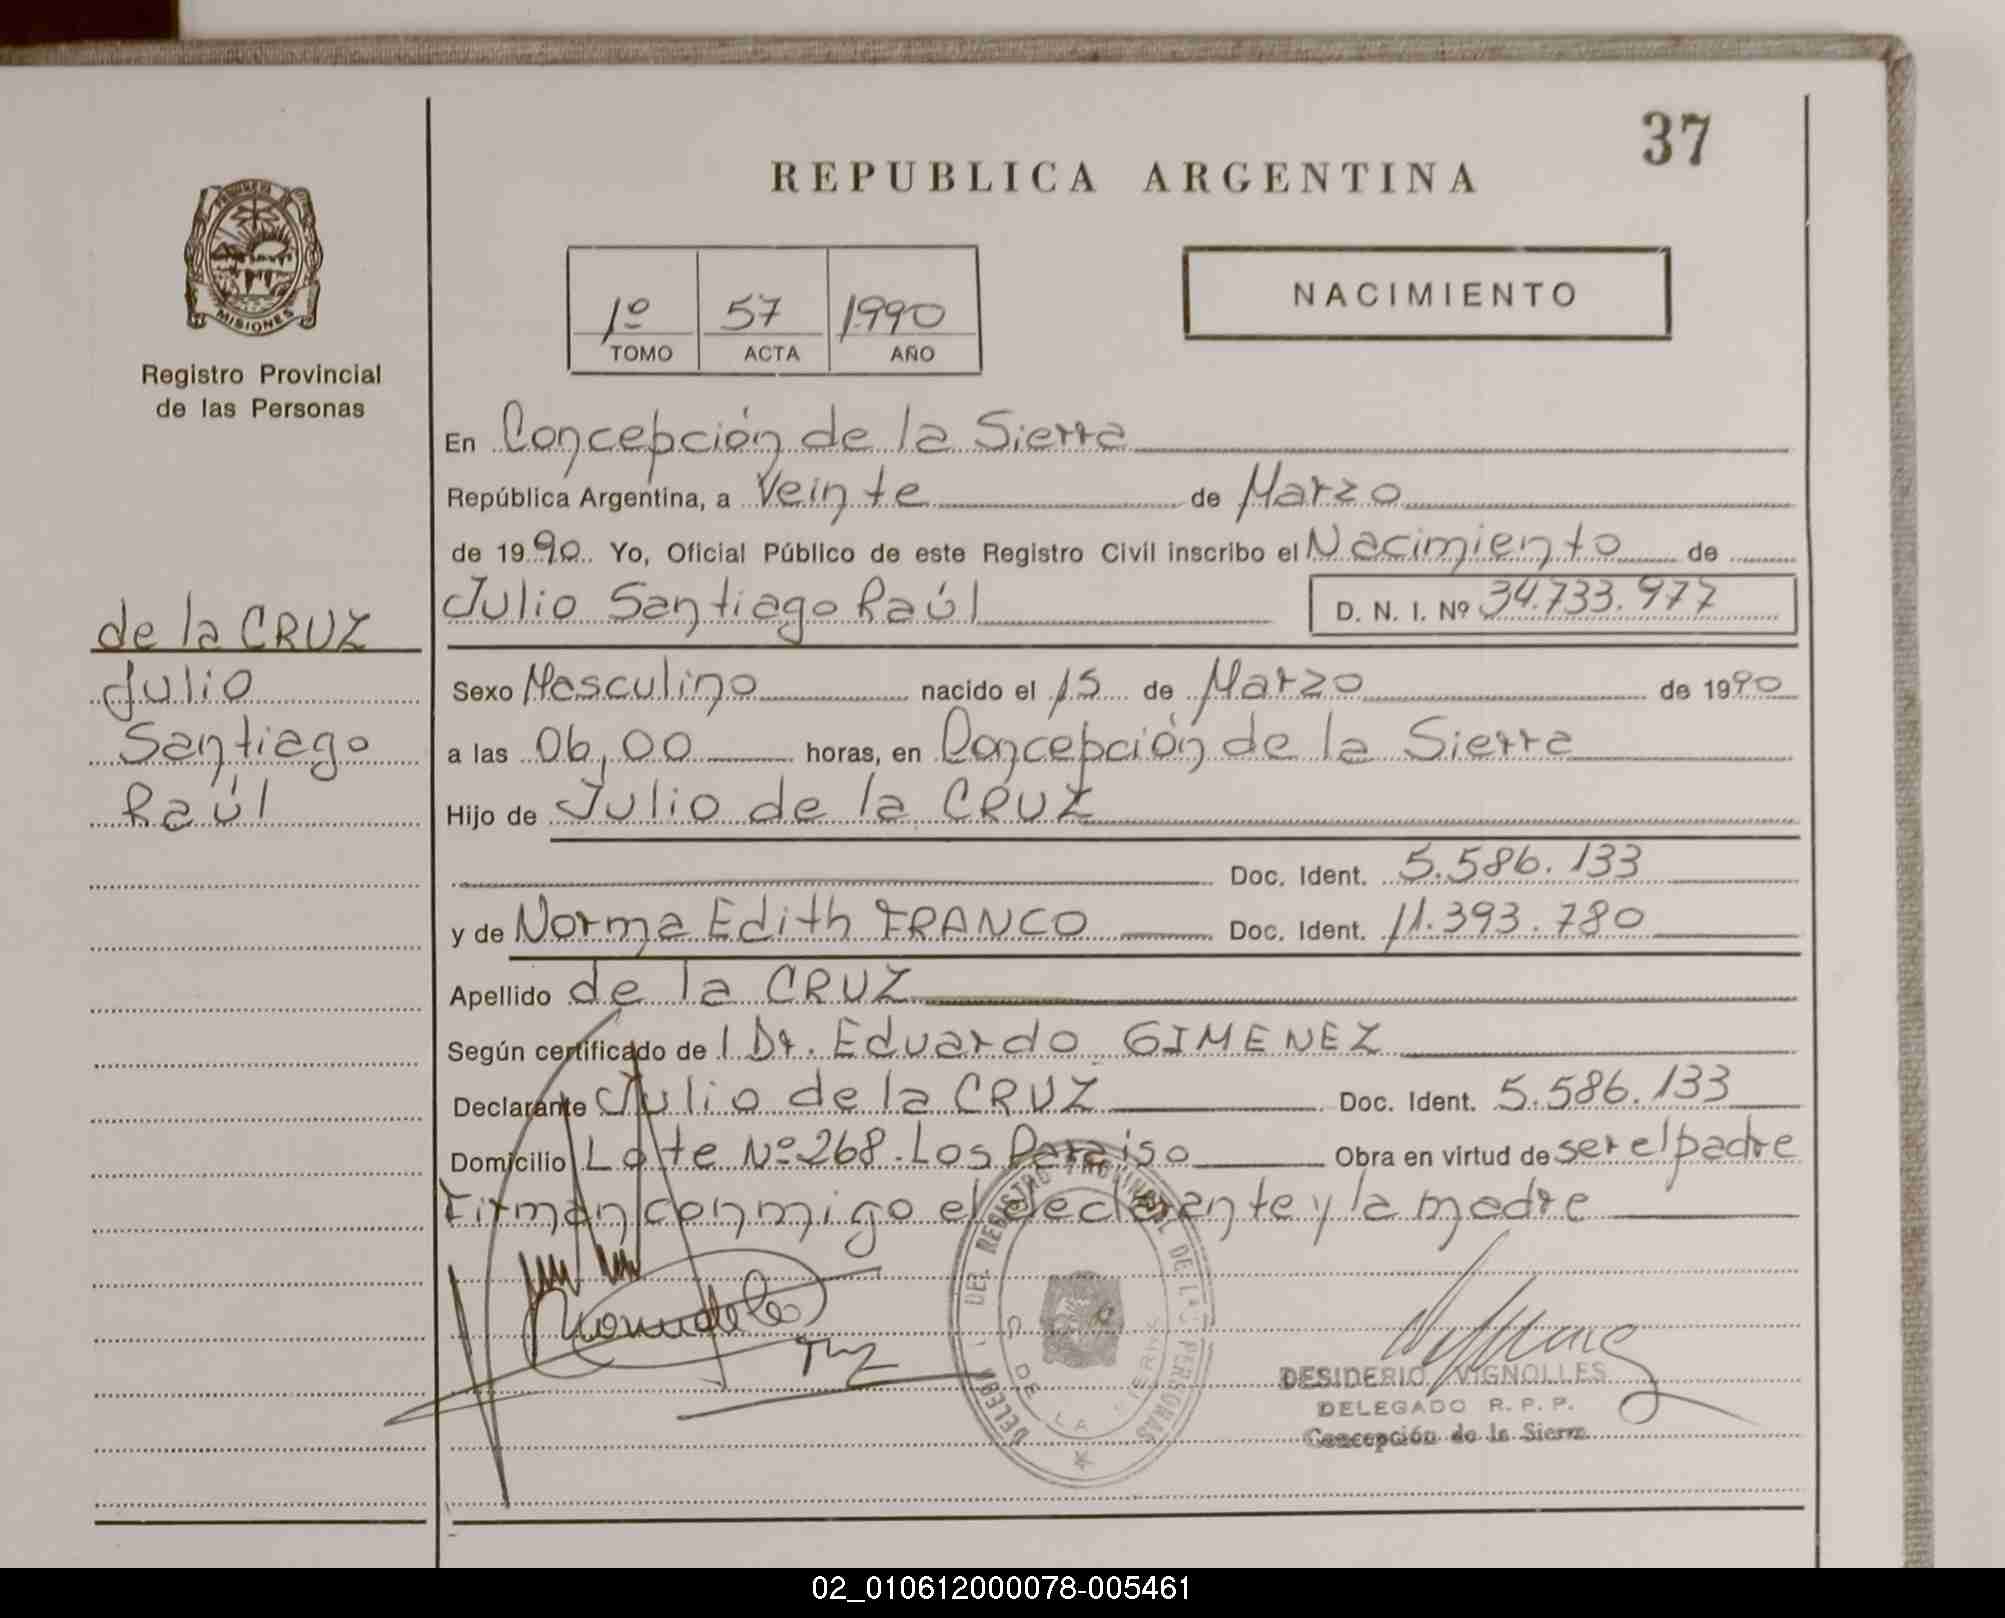 37
REPUBLICA ARGENTINA
PROVINCIA
MISIONES
Registro Provincial
de las Personas
1º 57 1990
TOMO ACTA AÑO
NACIMIENTO
En Concepción de la Sierra
República Argentina, a Veinte de Marzo
de 1990 Yo, Oficial Público de este Registro Civil inscribo el Nacimiento de
Julio Santiago Raúl D. N. I. Nº 34.733.977
de la CRUZ
Julio
Santiago
Raúl
Sexo Masculino nacido el 15 de Marzo de 1990
a las 06,00 horas, en Concepción de la Sierra
Hijo de Julio de la CRUZ
Doc. Ident. 5.586.133
y de Norma Edith FRANCO Doc. Ident. 11.393.780
Apellido de la CRUZ
Según certificado de l Dr. Eduardo GIMENEZ
Declarante Julio de la CRUZ Doc. Ident. 5.586.133
Domicilio Lote Nº 268. Los Paraiso Obra en virtud de ser el padre
Firman conmigo el declarante y la madre
DEL REGISTRO PROVINCIAL DE LAS PERSONAS
DE LA SIERRA
DESIDERIO VIGNOLLES
DELEGADO R. P. P.
Concepción de la Sierra
02_010612000078-005461